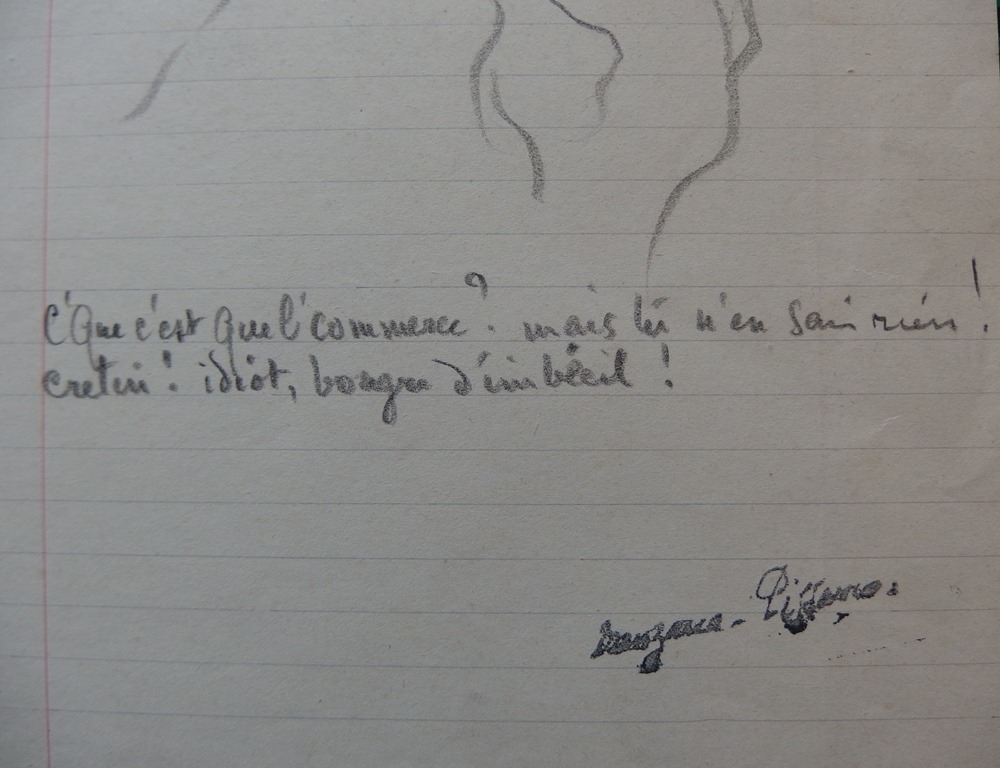 C'Que c'est que l'commerce ? mais tu n'en sai rien !
cretin ! idiot, bougre d'imbécil !
manzana - Pissarro.